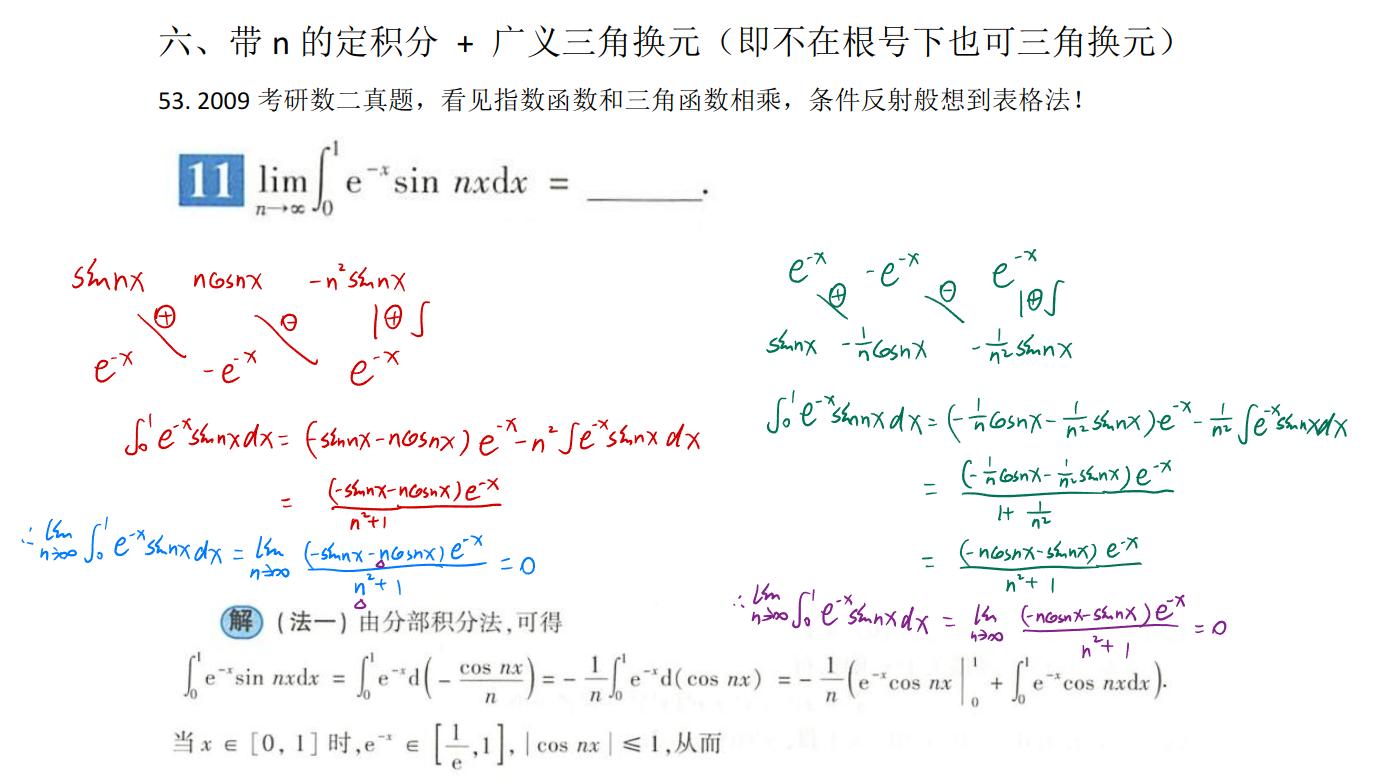 六、带 n 的定积分 + 广义三角换元（即不在根号下也可三角换元）
53. 2009 考研数二真题，看见指数函数和三角函数相乘，条件反射般想到表格法！
11 lim_{n→∞} ∫_0^1 e^{-x} sin nxdx = ______.
sinnx ncosnx -n²sinnx
⊕ ⊖ |⊕∫
e^{-x} -e^{-x} e^{-x}
∫_0^1 e^{-x}sinnxdx = (-sinnx-ncosnx) e^{-x} - n² ∫e^{-x}sinnx dx
= (-sinnx-ncosnx)e^{-x} / (n²+1)
∴ lim_{n→∞} ∫_0^1 e^{-x}sinnxdx = lim_{n→∞} (-sinnx-ncosnx)e^{-x} / (n²+1) = 0
e^{-x} -e^{-x} e^{-x}
⊕ ⊖ |⊕∫
sinnx -1/n cosnx -1/n² sinnx
∫_0^1 e^{-x}sinnxdx = (-1/n cosnx - 1/n² sinnx)e^{-x} - 1/n² ∫e^{-x}sinnxdx
= (-1/n cosnx - 1/n² sinnx)e^{-x} / (1+ 1/n²)
= (-ncosnx-sinnx) e^{-x} / (n²+1)
∴ lim_{n→∞} ∫_0^1 e^{-x}sinnxdx = lim_{n→∞} (-ncosnx-sinnx)e^{-x} / (n²+1) = 0
解 (法一) 由分部积分法,可得
∫_0^1 e^{-x}sin nxdx = ∫_0^1 e^{-x}d(- cos nx / n) = - 1/n ∫_0^1 e^{-x}d(cos nx) = - 1/n (e^{-x}cos nx |_0^1 + ∫_0^1 e^{-x}cos nxdx).
当 x ∈ [0, 1] 时,e^{-x} ∈ [1/e ,1], | cos nx | ≤ 1,从而